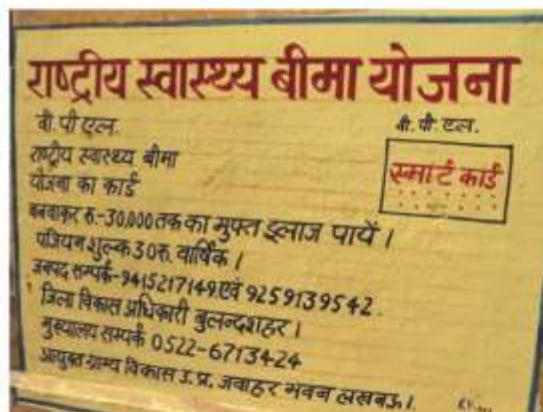 राष्ट्रीय स्वास्थ्य बीमा योजना
बी.पी.एल. बी.पी.एल.
राष्ट्रीय स्वास्थ्य बीमा
योजना का कार्ड स्मार्ट कार्ड
बनवाकर रु.-30,000 तक का मुफ्त इलाज पायें।
पंजियन शुल्क 30रु. वार्षिक।
जनपद सम्पर्क-9415217149 एवं 9259139542.
जिला विकास अधिकारी बुलन्दशहर।
मुख्यालय सम्पर्क 0522-6713424
आयुक्त ग्राम्य विकास उ.प्र. जवाहर भवन लखनऊ।